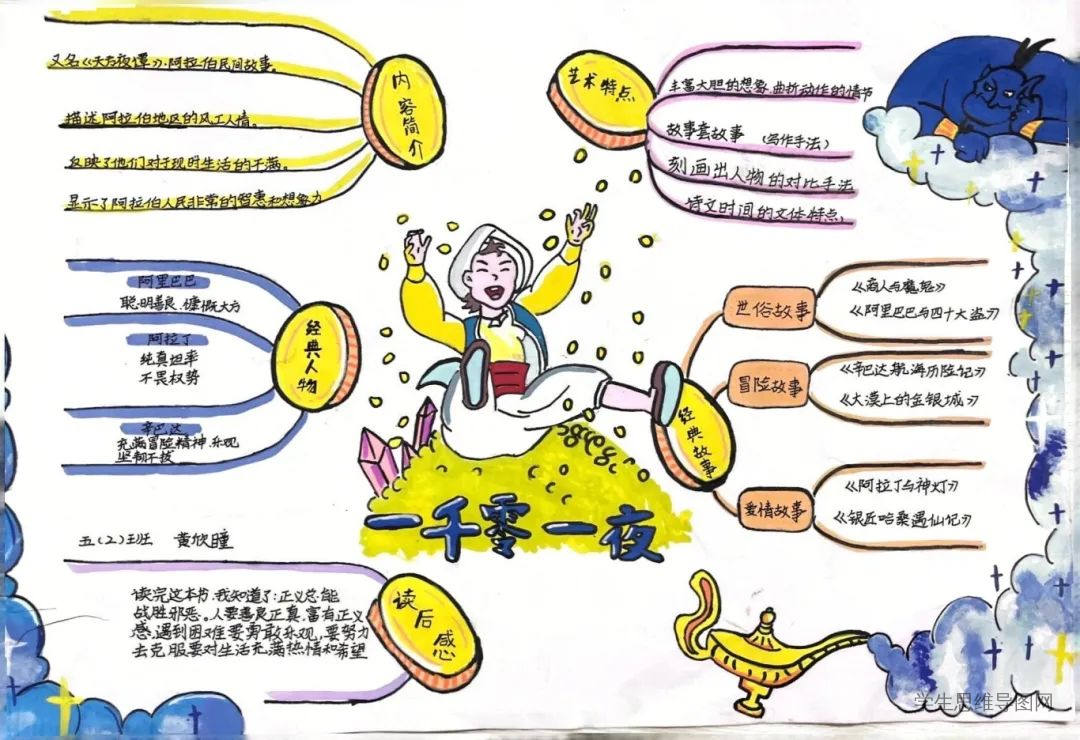 内容简介
又名《天方夜谭》,阿拉伯民间故事。
描述阿拉伯地区的风工人情。
反映了他们对于现时生活的不满。
显示了阿拉伯人民非常的智慧和想象力
艺术特点
丰富大胆的想象,曲折动作的情节
故事套故事 (写作手法)
刻画出人物的对比手法
诗文时间的文体特点,
经典人物
阿里巴巴
聪明善良、慷慨大方
阿拉丁
纯真坦率
不畏权势
辛巴达
充满冒险精神,乐观
坚韧不拔
经典故事
世俗故事
《商人与魔鬼》
《阿里巴巴与四十大盗》
冒险故事
《辛巴达航海历险记》
《大漠上的金银城》
爱情故事
《阿拉丁与神灯》
《银匠哈桑遇仙记》
一千零一夜
五(2)班 黄欣瞳
读后感
读完这本书,我知道了:正义总能
战胜邪恶。人要善良正真,富有正义
感,遇到困难要勇敢乐观,要努力
去克服要对生活充满热情和希望
学生思维导图网